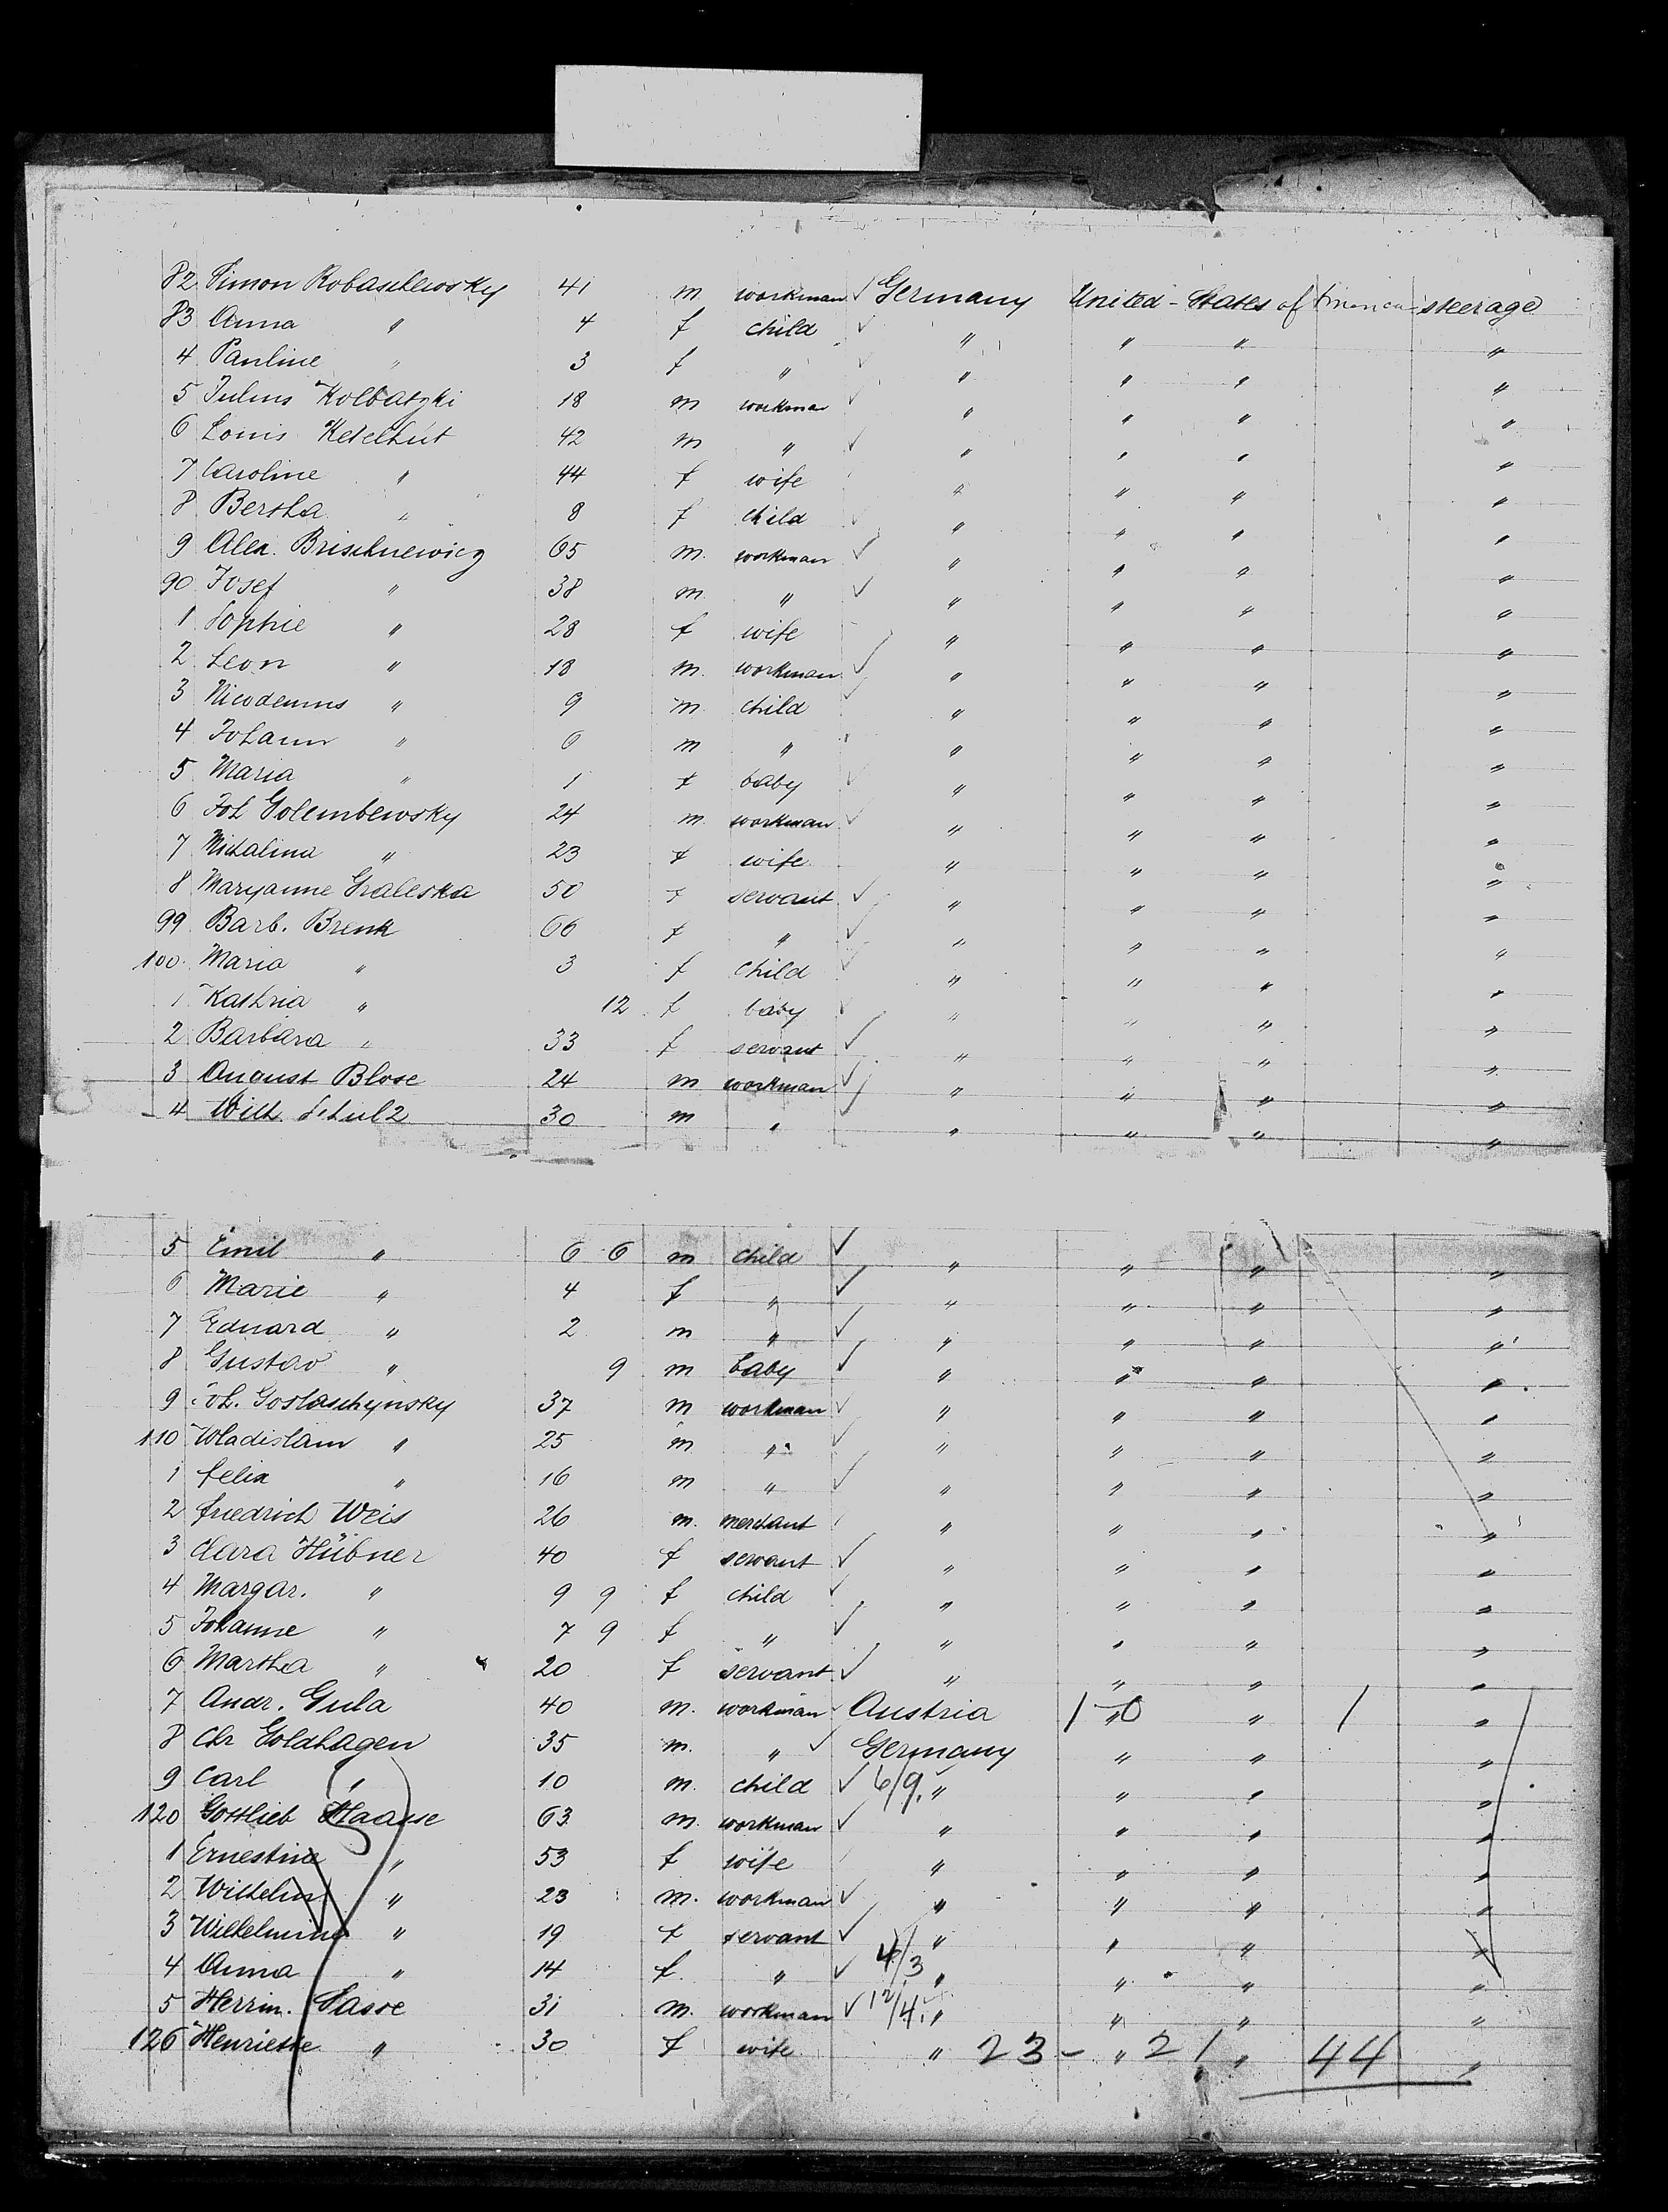 82 Simon Robaschewsky 41 m workman ✓ Germany United-States of America steerage
83 Anna " 4 f child ✓ " " " "
4 Pauline " 3 f " ✓ " " " "
5 Julius Kolbatzki 18 m workman ✓ " " " "
6 Louis Ketelhut 42 m " ✓ " " " "
7 Caroline " 44 f wife " " " "
8 Bertha " 8 f child ✓ " " " "
9 Alex. Brischnewicz 65 m. workman ✓ " " " "
90 Josef " 38 m. " ✓ " " " "
1 Sophie " 28 f wife " " " "
2 Leon " 18 m. workman ✓ " " " "
3 Nicodemus " 9 m. child ✓ " " " "
4 Johann " 6 m " " " " "
5 Maria " 1 f baby ✓ " " " "
6 Joh Golembewsky 24 m. workman ✓ " " " "
7 Michalina " 23 f wife " " " "
8 Maryanne Graleska 50 f servant ✓ " " " "
99 Barb. Brenk 66 f " ✓ " " " "
100 Maria " 3 f child ✓ " " " "
1 Kathria " 12 f baby ✓ " " " "
2 Barbara " 33 f servant ✓ " " " "
3 August Blose 24 m workman ✓ " " " "
4 Wilh. Schulz 30 m " ✓ " " " "
5 Emil " 6 6 m child ✓ " " " "
6 Marie " 4 f " ✓ " " " "
7 Eduard " 2 m " ✓ " " " "
8 Gustav " 9 m baby ✓ " " " "
9 Joh. Goslaschynsky 37 m workman ✓ " " " "
110 Wladislaw " 25 m " ✓ " " " "
1 Felix " 16 m " ✓ " " " "
2 Friedrich Weis 26 m. merchant " " " "
3 Clara Hübner 40 f servant ✓ " " " "
4 Margar. " 9 9 f child ✓ " " " "
5 Johanne " 7 9 f " ✓ " " " "
6 Martha " 20 f servant ✓ " " " "
7 Andr. Gula 40 m. workman Austria 1-0 " " 1 "
8 Chr Goldhagen 35 m. " ✓ Germany " " "
9 Carl " 10 m. child ✓ 6/9. " " " "
120 Gottlieb Haase 63 m. workman ✓ " " " "
1 Ernestine " 53 f wife " " " "
2 Wilhelm " 23 m. workman ✓ " " " "
3 Wilhelmine " 19 f servant ✓ " " " "
4 Anna " 14 f. " ✓ 4/3 " " " "
5 Herrm. Sasse 31 m. workman ✓ 12/4. " " " "
126 Henriette " 30 f wife " 23- " 21 " 44 "